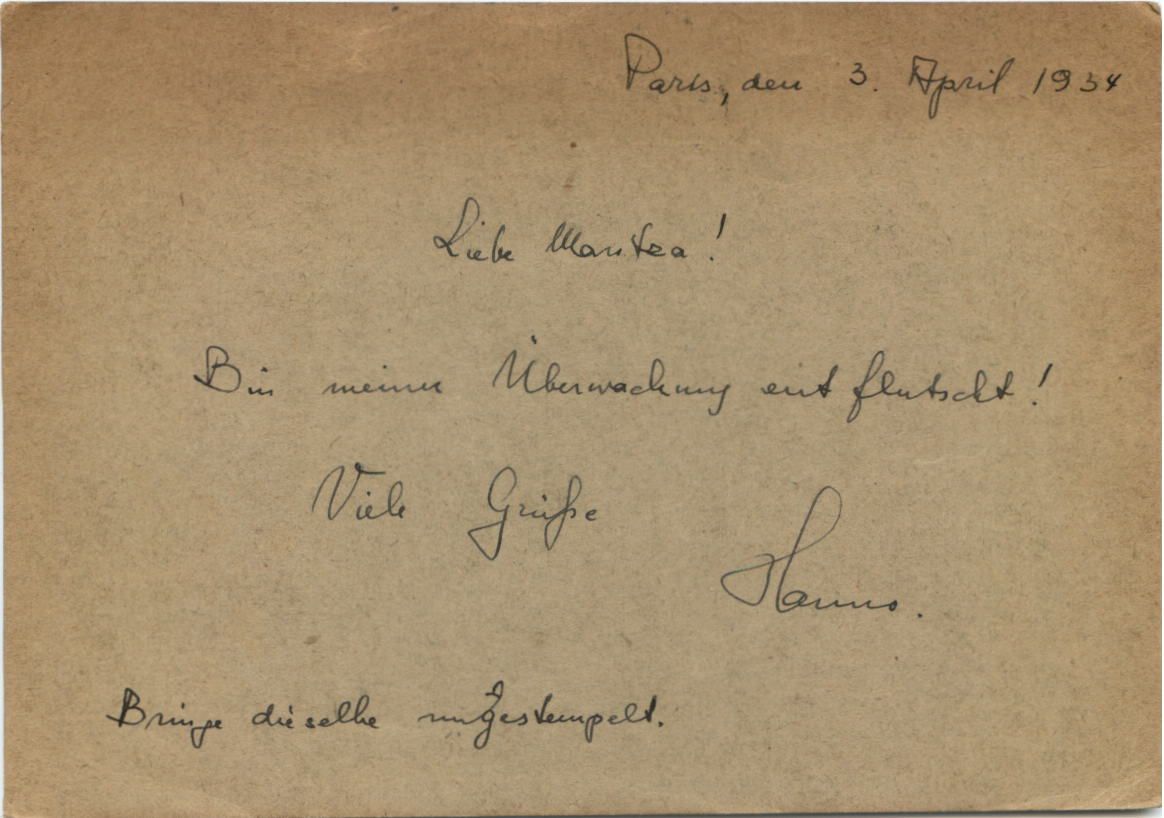 Paris, den 3. April 1934
Liebe Maritza!
Bin meiner Überwachung entflutscht!
Viele Grüße
Hanns.
Bringe dieselbe ungestempelt.